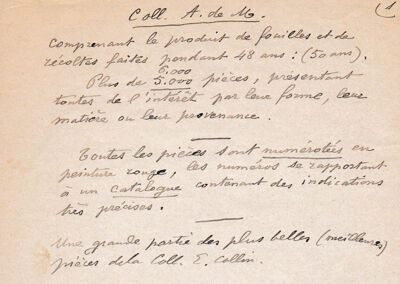 (1
Coll. A. de M.
comprenant le produit de fouilles et de
récoltes faites pendant 48 ans : (50 ans).
6.000
Plus de 5.000 pièces, présentant
toutes de l'intérêt par leur forme, leur
matière ou leur provenance.
Toutes les pièces sont numérotées en
peinture rouge, les numéros se rapportant
à un catalogue contenant des indications
très précises.
Une grande partie des plus belles (meilleures)
pièces de la Coll. E. Collin.